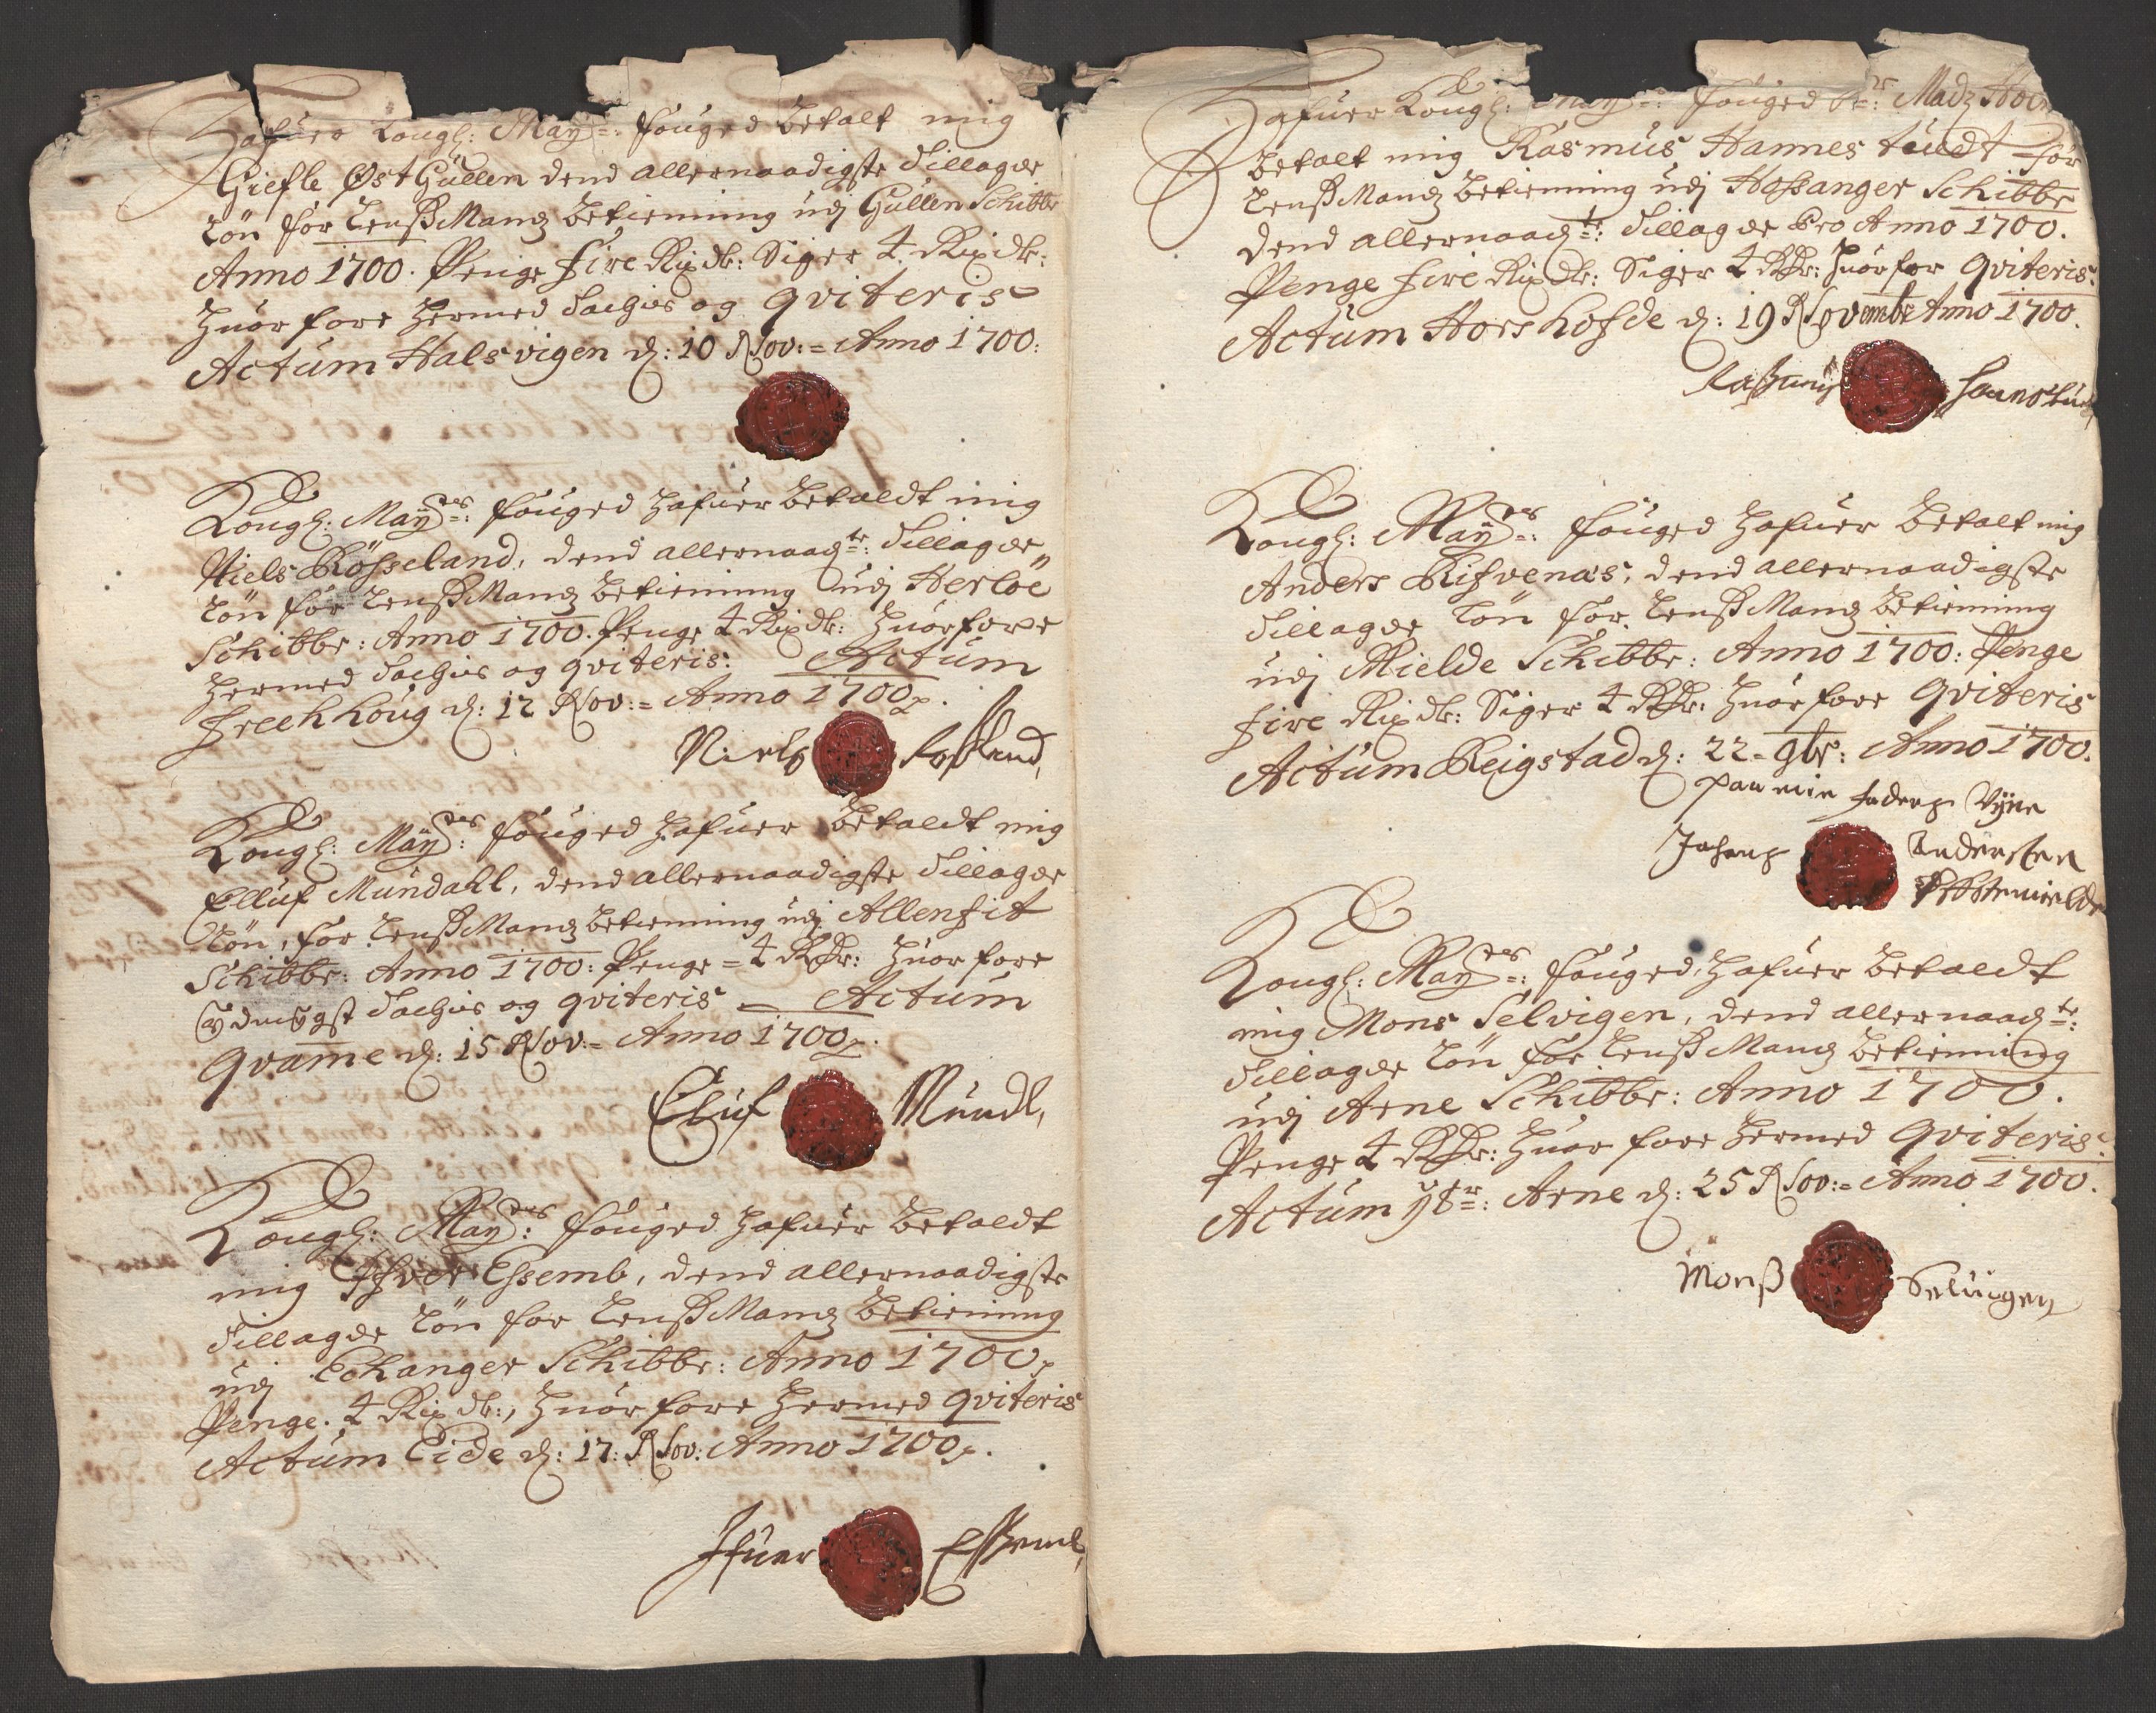 Hafuer Kongl: May: fouged betalt mig
Giefle Øst Gullen dend allernaadigste tillagde
Løn for Lenssmandz betienning udj Gullen Schibbr
Anno 1700. Penge fire Rixdlr: Siger 4 Rixdlr:
Huorfore hermed tachis og qviteris
Actum Halsvigen d: 10 Nov:= Anno 1700:
Kongl: Maytes: fouged hafuer betaldt mig
Niels Rösseland, dend allernaadte: tillagde
Løn for Lenssmandz betienning udj Herlöe
Schibbr: Anno 1700. Penge 4 Rixdlr: Huorfore
hermed tachis og qviteris: Actum
Freechhoug d: 12 Nov:= Anno 1700.
Niels Rossland,
Kongl: Maytes: fouged hafuer betaldt mig
Elluf Mundahl, dend allernaadigste tillagde
Løn, for Lenssmandz betienning udj Allenfit
Schibbr: Anno 1700: Penge = 4 Rdr: Huorfore
ydmygst tachis og qviteris = Actum
Qvamme d: 15 Nov:= Anno 1700.
Eluf Mundl,
Kongl: Maytes: fouged hafuer betaldt
mig Ifver Essemb, dend allernaadigste
tillagde Løn for Lenssmandz betienning
udj Echanger Schibbr: Anno 1700
Penge. 4 Rixdlr:, Huorfore hermed qviteris
Actum Eide d: 17: Nov: Anno 1700.
Ifuer Essemb,
Hafuer Kongl: May: fouged Sr: Madz
betalt mig Rasmus Hannestuedt for
Lenssmandz betienning udj Hossanger Schibbr
dend allernaadte: tillagde Pro Anno 1700.
Penge fire Rixdlr: Siger 4 Rdr: Huorfor qviteris:
Actum Horshofde d: 19 Novembr Anno 1700.
Rasmus Hanestued
Kongl: Maytes: fouged hafuer betalt mig
Anders Rifvenæs, dend allernaadigste
tillagde Løn for Lenssmandz betienning
udj Mielde Schibbr: Anno 1700: Penge
fire Rixdlr: Siger 4 Rdr: Huorfore qviteris
Actum Reigstad d: 22 = 9br: Anno 1700.
paa min faders Vegne
Johans Andersen
Kongl: Maytes: fouged, hafuer betaldt
mig Mons Selvigen, dend allernaadte:
tillagde Løn for Lenssmandz betienning
udj Arne Schibbr: Anno 1700.
Penge 4 Rdr: Huorfore hermed qviteris:
Actum ytr: Arne d: 25 Nov:= Anno 1700.
Monss Seluigen